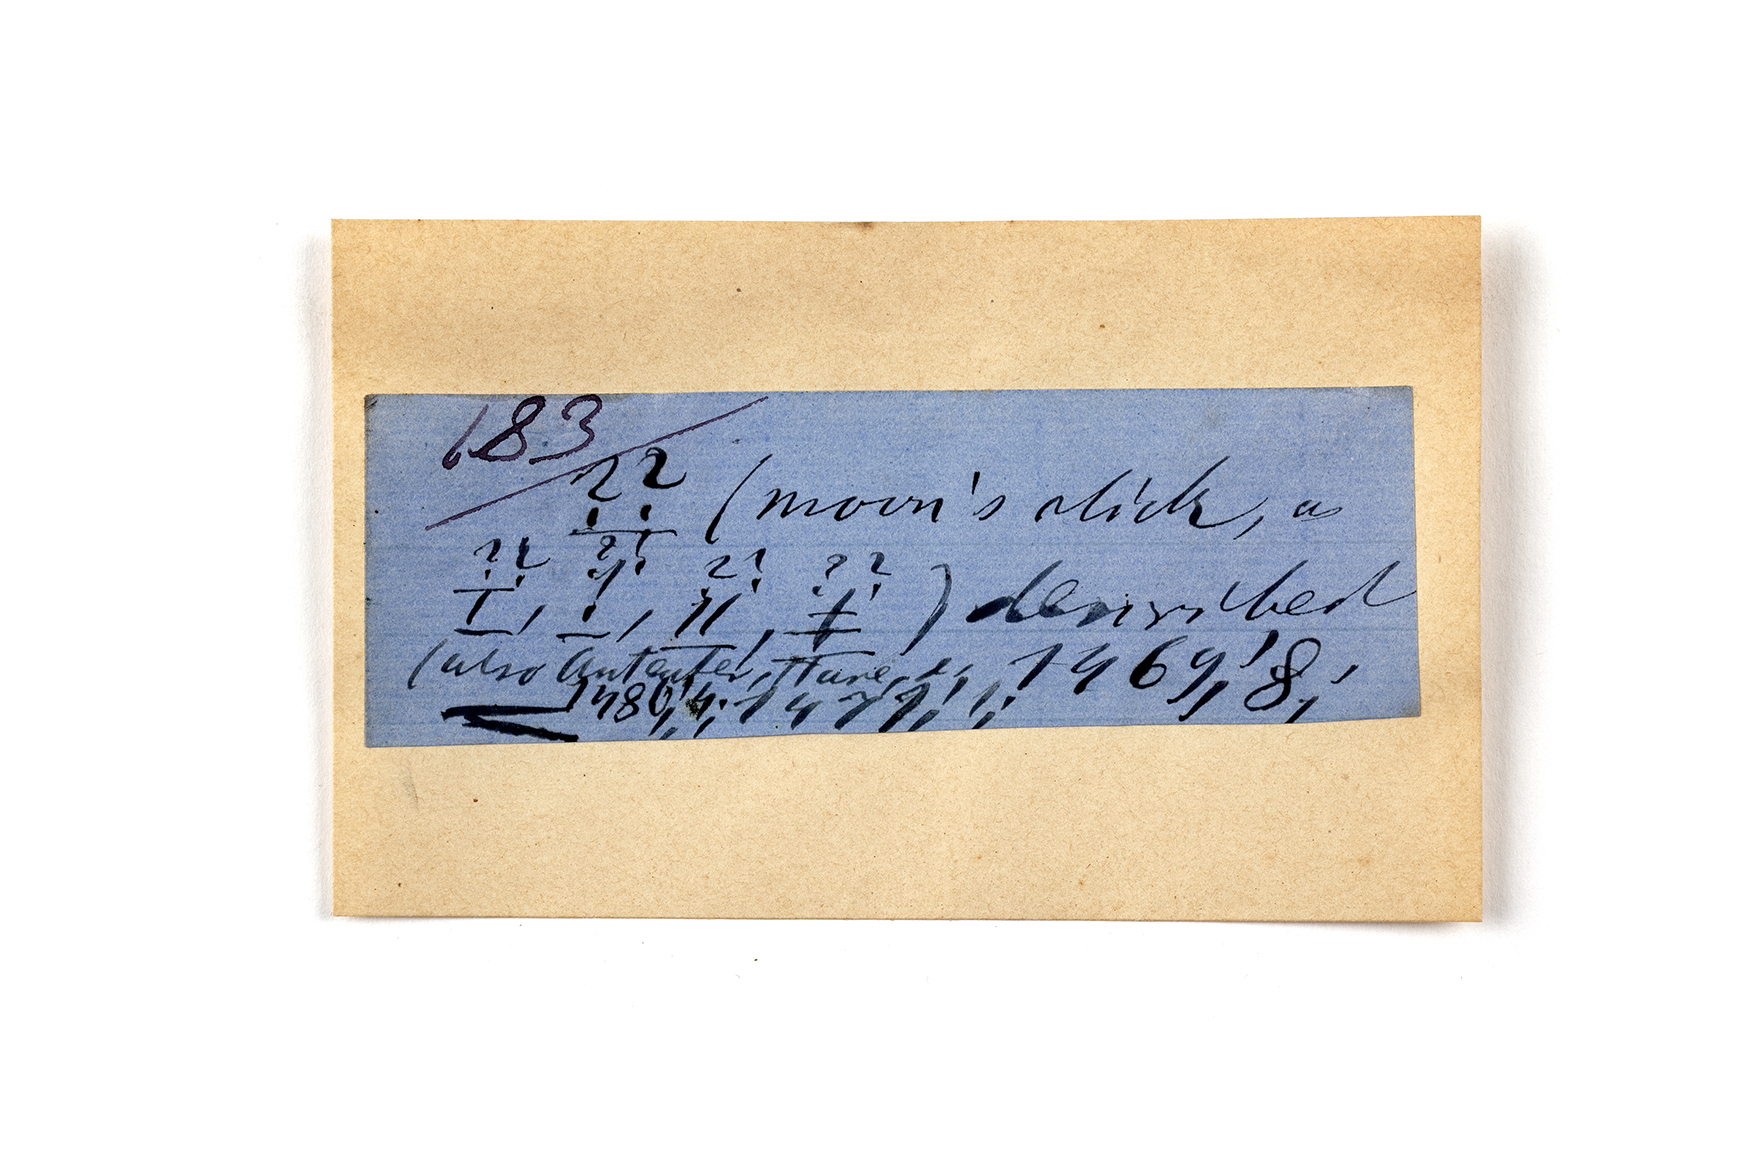 183
?? (moon's click, as
?? , ?? , ?? , ?? ) described
(also Anteater, Hare, &, 1469', 8,'
1480', 4'. 1479',